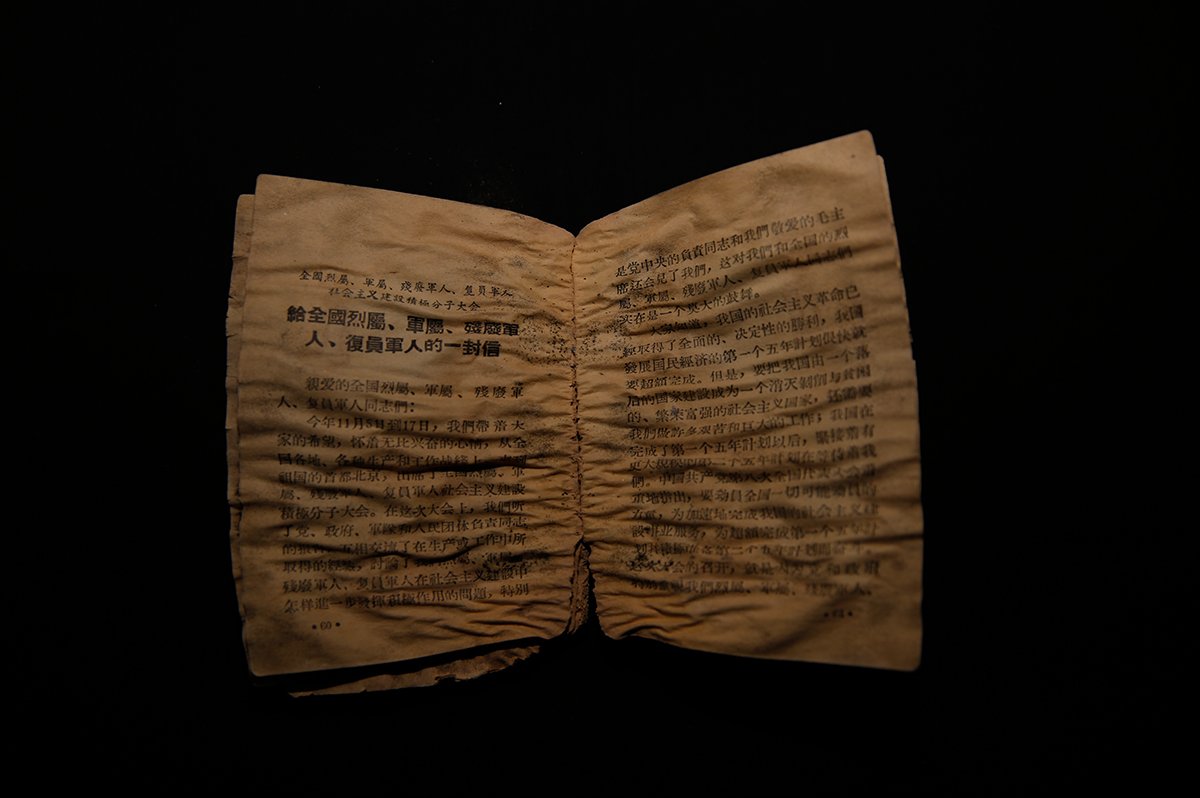 全國烈屬、軍屬、殘廢軍人、复員軍人
社会主义建設積極分子大会
給全國烈屬、軍屬、殘廢軍
人、復員軍人的一封信
親爱的全国烈屬、軍屬、殘廢軍
人、复員軍人同志們：
今年11月5日到17日，我們帶着大
家的希望，怀着无比兴奋的心情，从全
国各地、各种生产和工作战綫上，来到
祖国的首都北京，出席了全国烈屬、軍
屬、殘廢軍人、复員軍人社会主义建設
積極分子大会。在这次大会上，我們听
了党、政府、軍隊和人民团体負責同志
的報告，互相交流了在生产或工作中所
取得的經驗，討論了烈屬、軍屬、
殘廢軍人、复員軍人在社会主义建設中
怎样進一步發揮積極作用的問題，特別
•60•
是党中央的負責同志和我們敬爱的毛主
席还会見了我們，这对我們和全国的烈
屬、軍屬、殘廢軍人、复員軍人同志們
实在是一个莫大的鼓舞。
大家知道，我国的社会主义革命已
經取得了全面的、决定性的勝利，我国
發展国民經济的第一个五年計划很快就
要超額完成。但是，要把我国由一个落
后的国家建設成为一个消灭剝削与貧困
的、繁榮富强的社会主义国家，还需要
我們做許多艰苦和巨大的工作；我国在
完成了第一个五年計划以后，緊接着有
更大規模的第二个五年計划在等待着我
們。中国共产党第八次全国代表大会
指出，要动員全国一切可能动員的
力量，为加速地完成我国的社会主义建
設事业服务，为超額完成第一个五年計
划并積極准备第二个五年計划
这次大会的召开，就是因为党和政府
特別重視我們烈屬、軍屬、殘廢軍人、
•61•